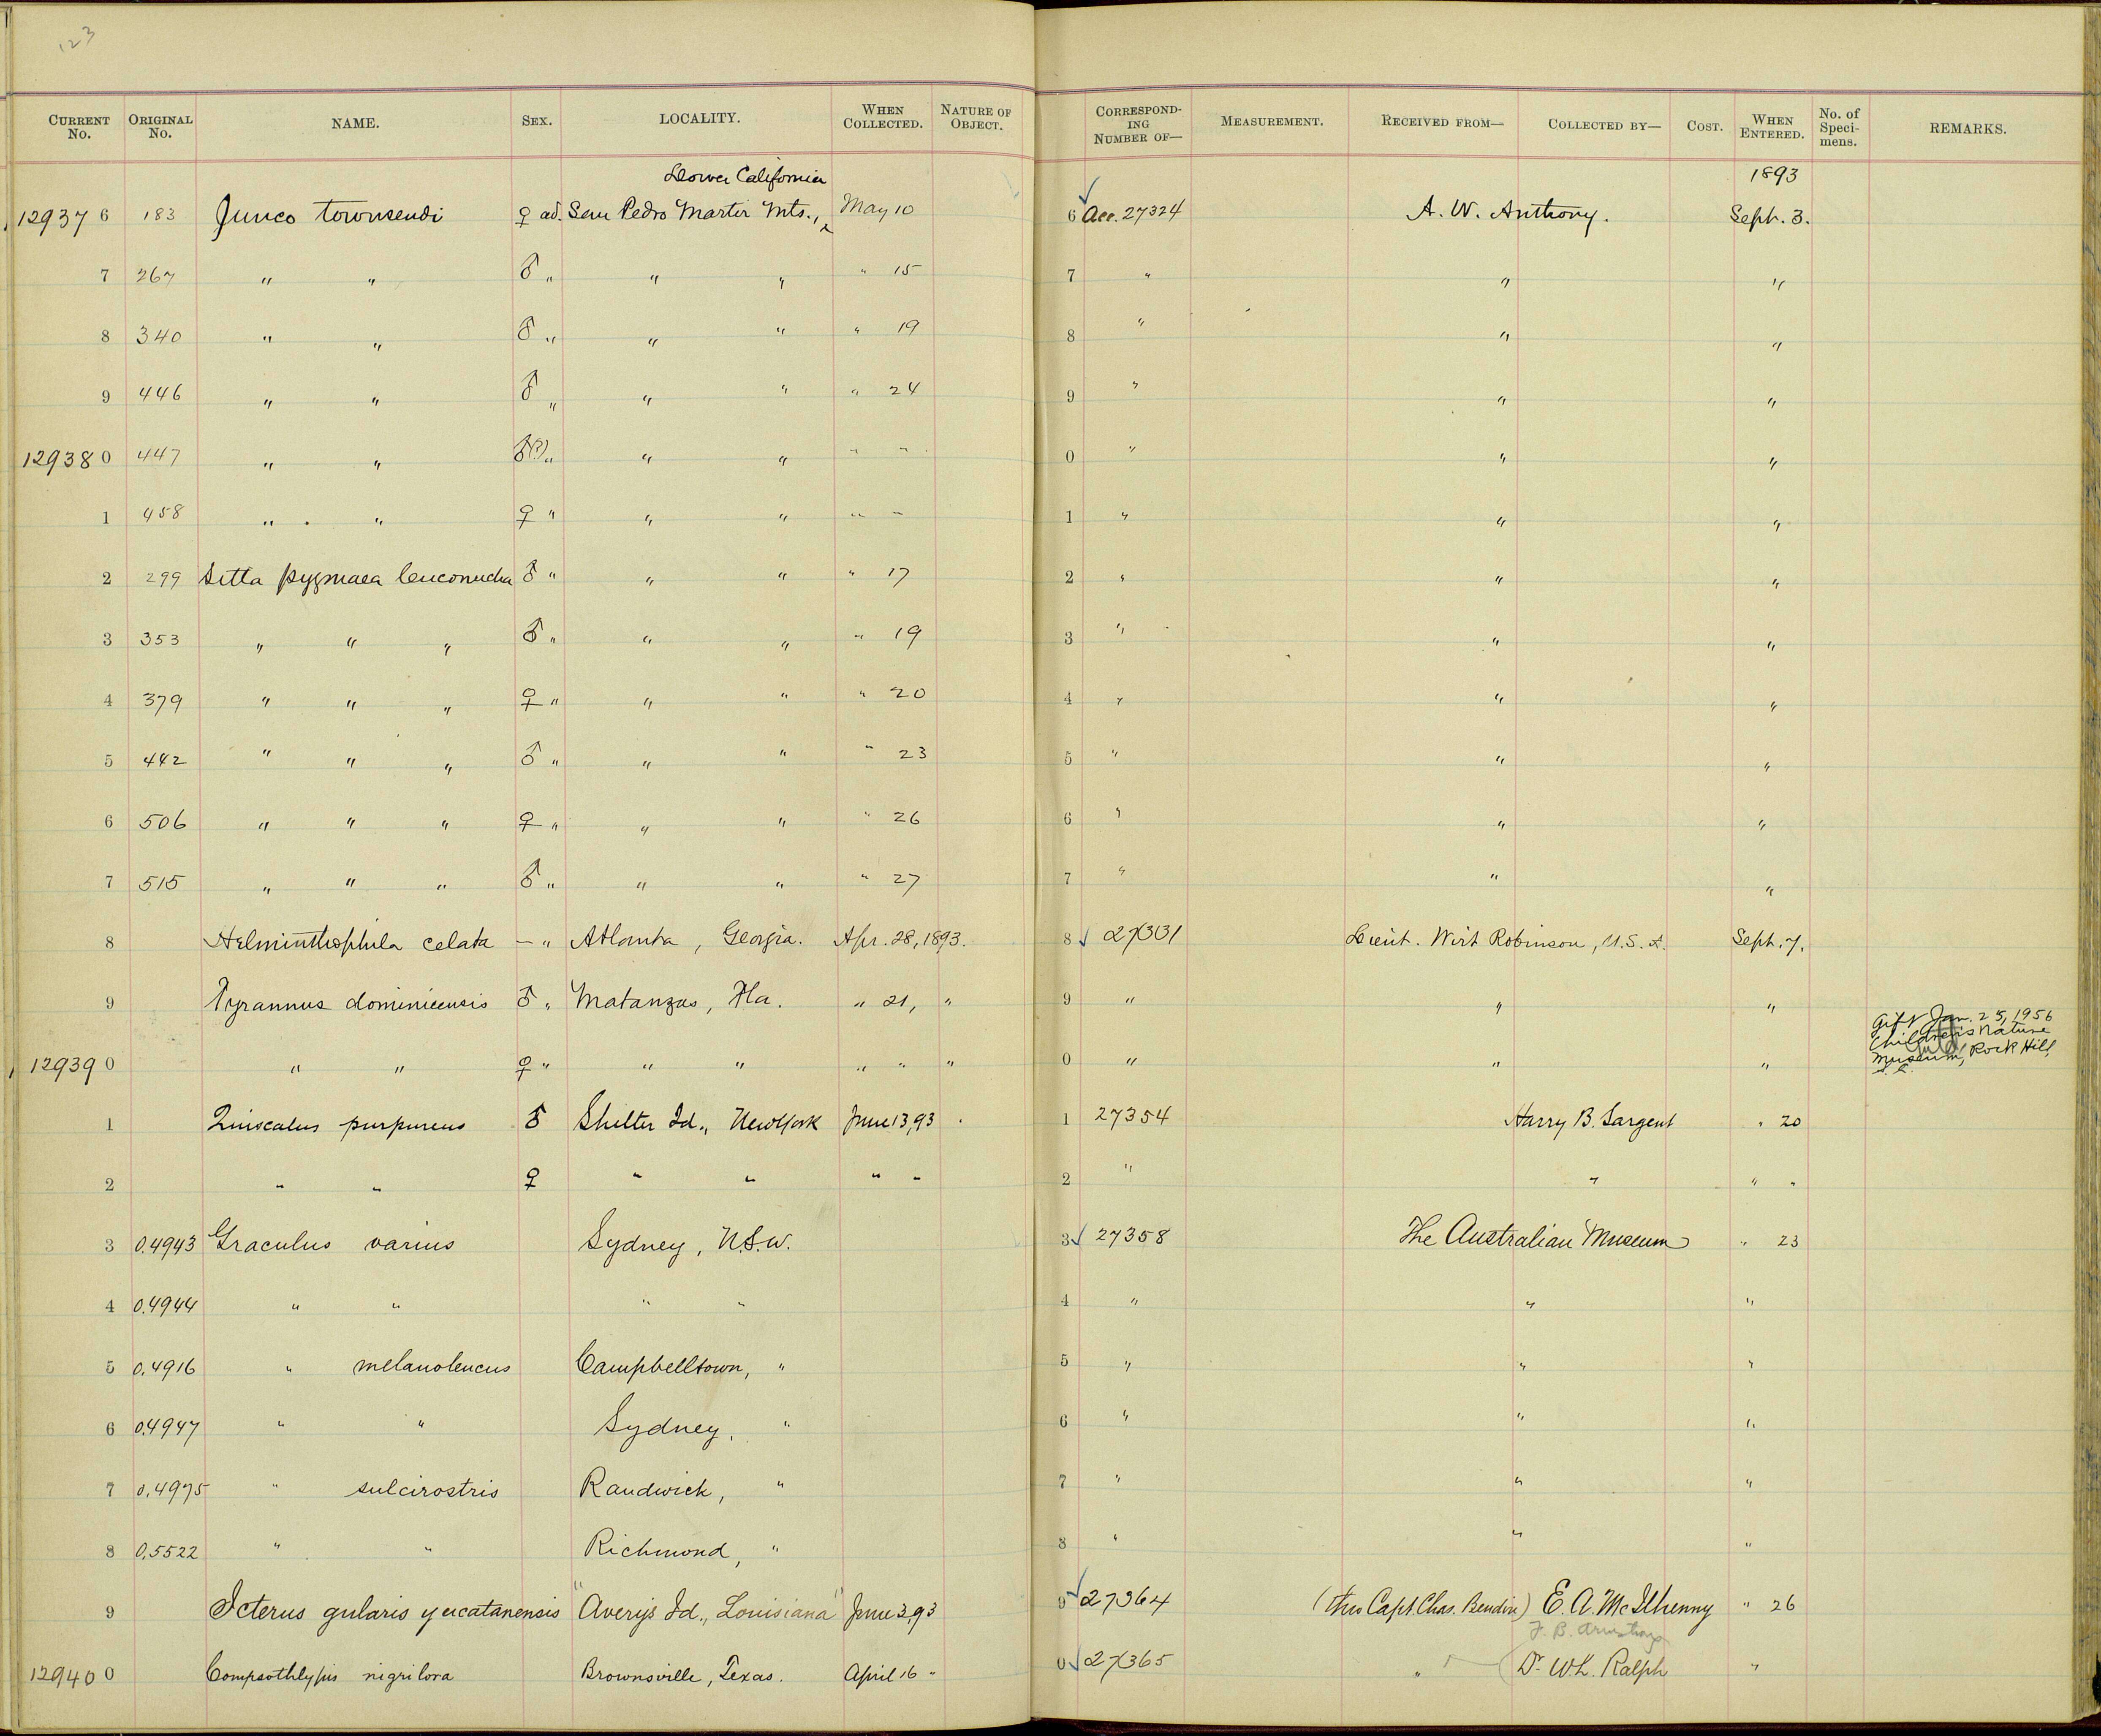 123
CURRENT No. ORIGINAL No. NAME. SEX. LOCALITY. WHEN COLLECTED. NATURE OF OBJECT. CORRESPONDING NUMBER OF— MEASUREMENT. RECEIVED FROM— COLLECTED BY— COST. WHEN ENTERED. No. of Specimens. REMARKS.
Lower California 1893
129376 183 Junco townsendi ♀ ad. San Pedro Martir Mts., May 10 6 Acc. 27324 A. W. Anthony. Sept. 3.
7 267 " " ♂ " " " " 15 7 " " "
8 340 " " ♂ " " " " 19 8 " " "
9 446 " " ♂ " " " " 24 9 " " "
129380 447 " " ♂(?) " " " " " 0 " " "
1 458 " " ♀ " " " " " 1 " " "
2 299 Sitta pygmaea leuconucha ♂ " " " " 17 2 " " "
3 353 " " " ♂ " " " " 19 3 " " "
4 379 " " " ♀ " " " " 20 4 " " "
5 442 " " " ♂ " " " " 23 5 " " "
6 506 " " " ♀ " " " " 26 6 " " "
7 515 " " " ♂ " " " " 27 7 " " "
8 Helminthophila celata — " Atlanta, Georgia. Apr. 28, 1893. 8 27331 Lieut. Wirt Robinson, U.S.A. Sept. 7.
9 Tyrannus dominicensis ♂ " Matanzas, Fla. " 21, " 9 " " "
Gift Jan. 25, 1956
Children's Nature
Museum, Rock Hill,
S. C.
129390 " " ♀ " " " " " " 0 " " "
1 Quiscalus purpureus ♂ Shelter Id., New York June 13, 93 1 27354 Harry B. Sargent " 20
2 " " ♀ " " " " 2 " " " "
3 0.4943 Graculus varius Sydney, N.S.W. 3 27358 The Australian Museum " 23
4 0.4944 " " " " 4 " " "
5 0.4916 " melanoleucus Campbelltown, " 5 " " "
6 0.4947 " " Sydney, " 6 " " "
7 0.4975 " sulcirostris Randwick, " 7 " " "
8 0.5522 " " Richmond, " 8 " " "
9 Icterus gularis yucatanensis "Averys Id., Louisiana" June 3, 93 9 27364 (thro Capt. Chas. Bendire) E. A. McIlhenny " 26
F. B. Armstrong
129400 Compsothlypis nigrilora Brownsville, Texas. April 16 " 0 27365 " Dr. W. L. Ralph "